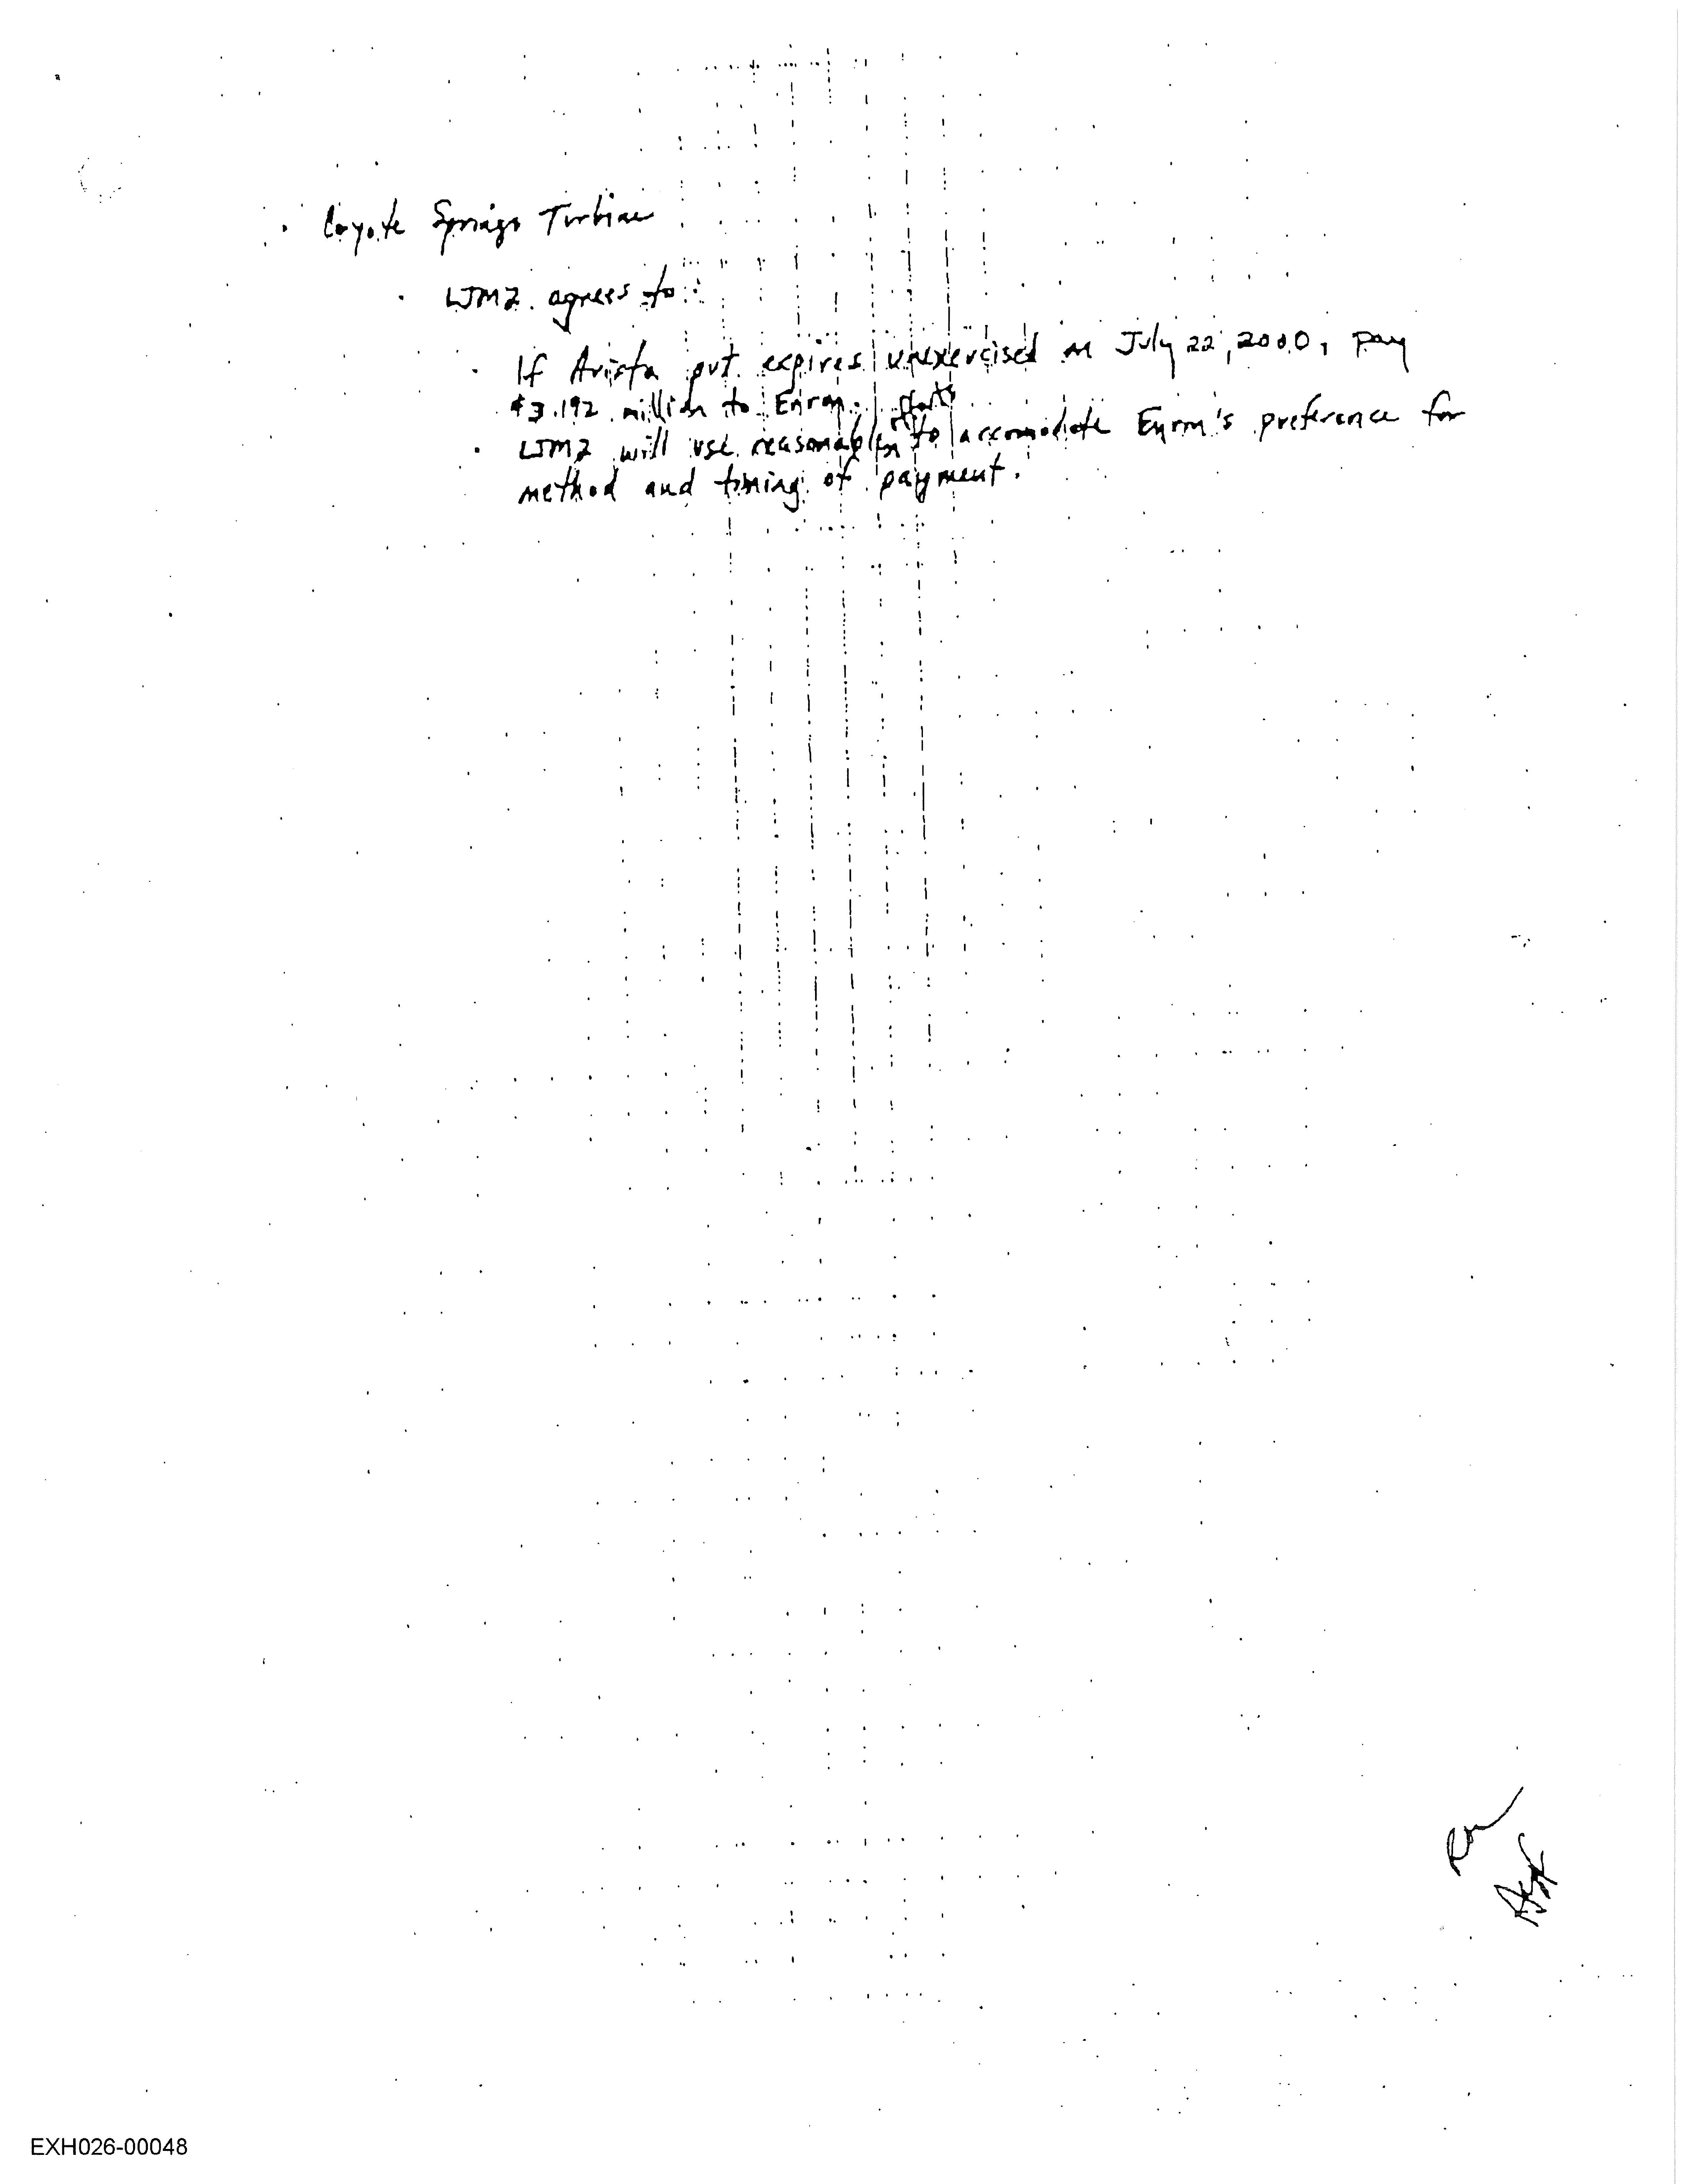 · Coyote Springs Turbine
· LJM2 agrees to:
· If Avista put expires unexercised on July 22, 2000, pay
$3.192 million to Enron.
efforts
· LJM2 will use reasonable to accomodate Enron's preference for
method and timing of payment.
EXH026-00048